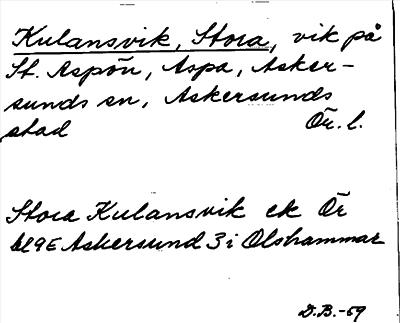 Kulansvik, Stora, vik på
St. Aspön, Aspa, Asker-
sunds sn, Askersunds
stad Ör. l.
Stora Kulansvik ek Ör
bl 9E Askersund 3 i Olshammar
D.B.-59